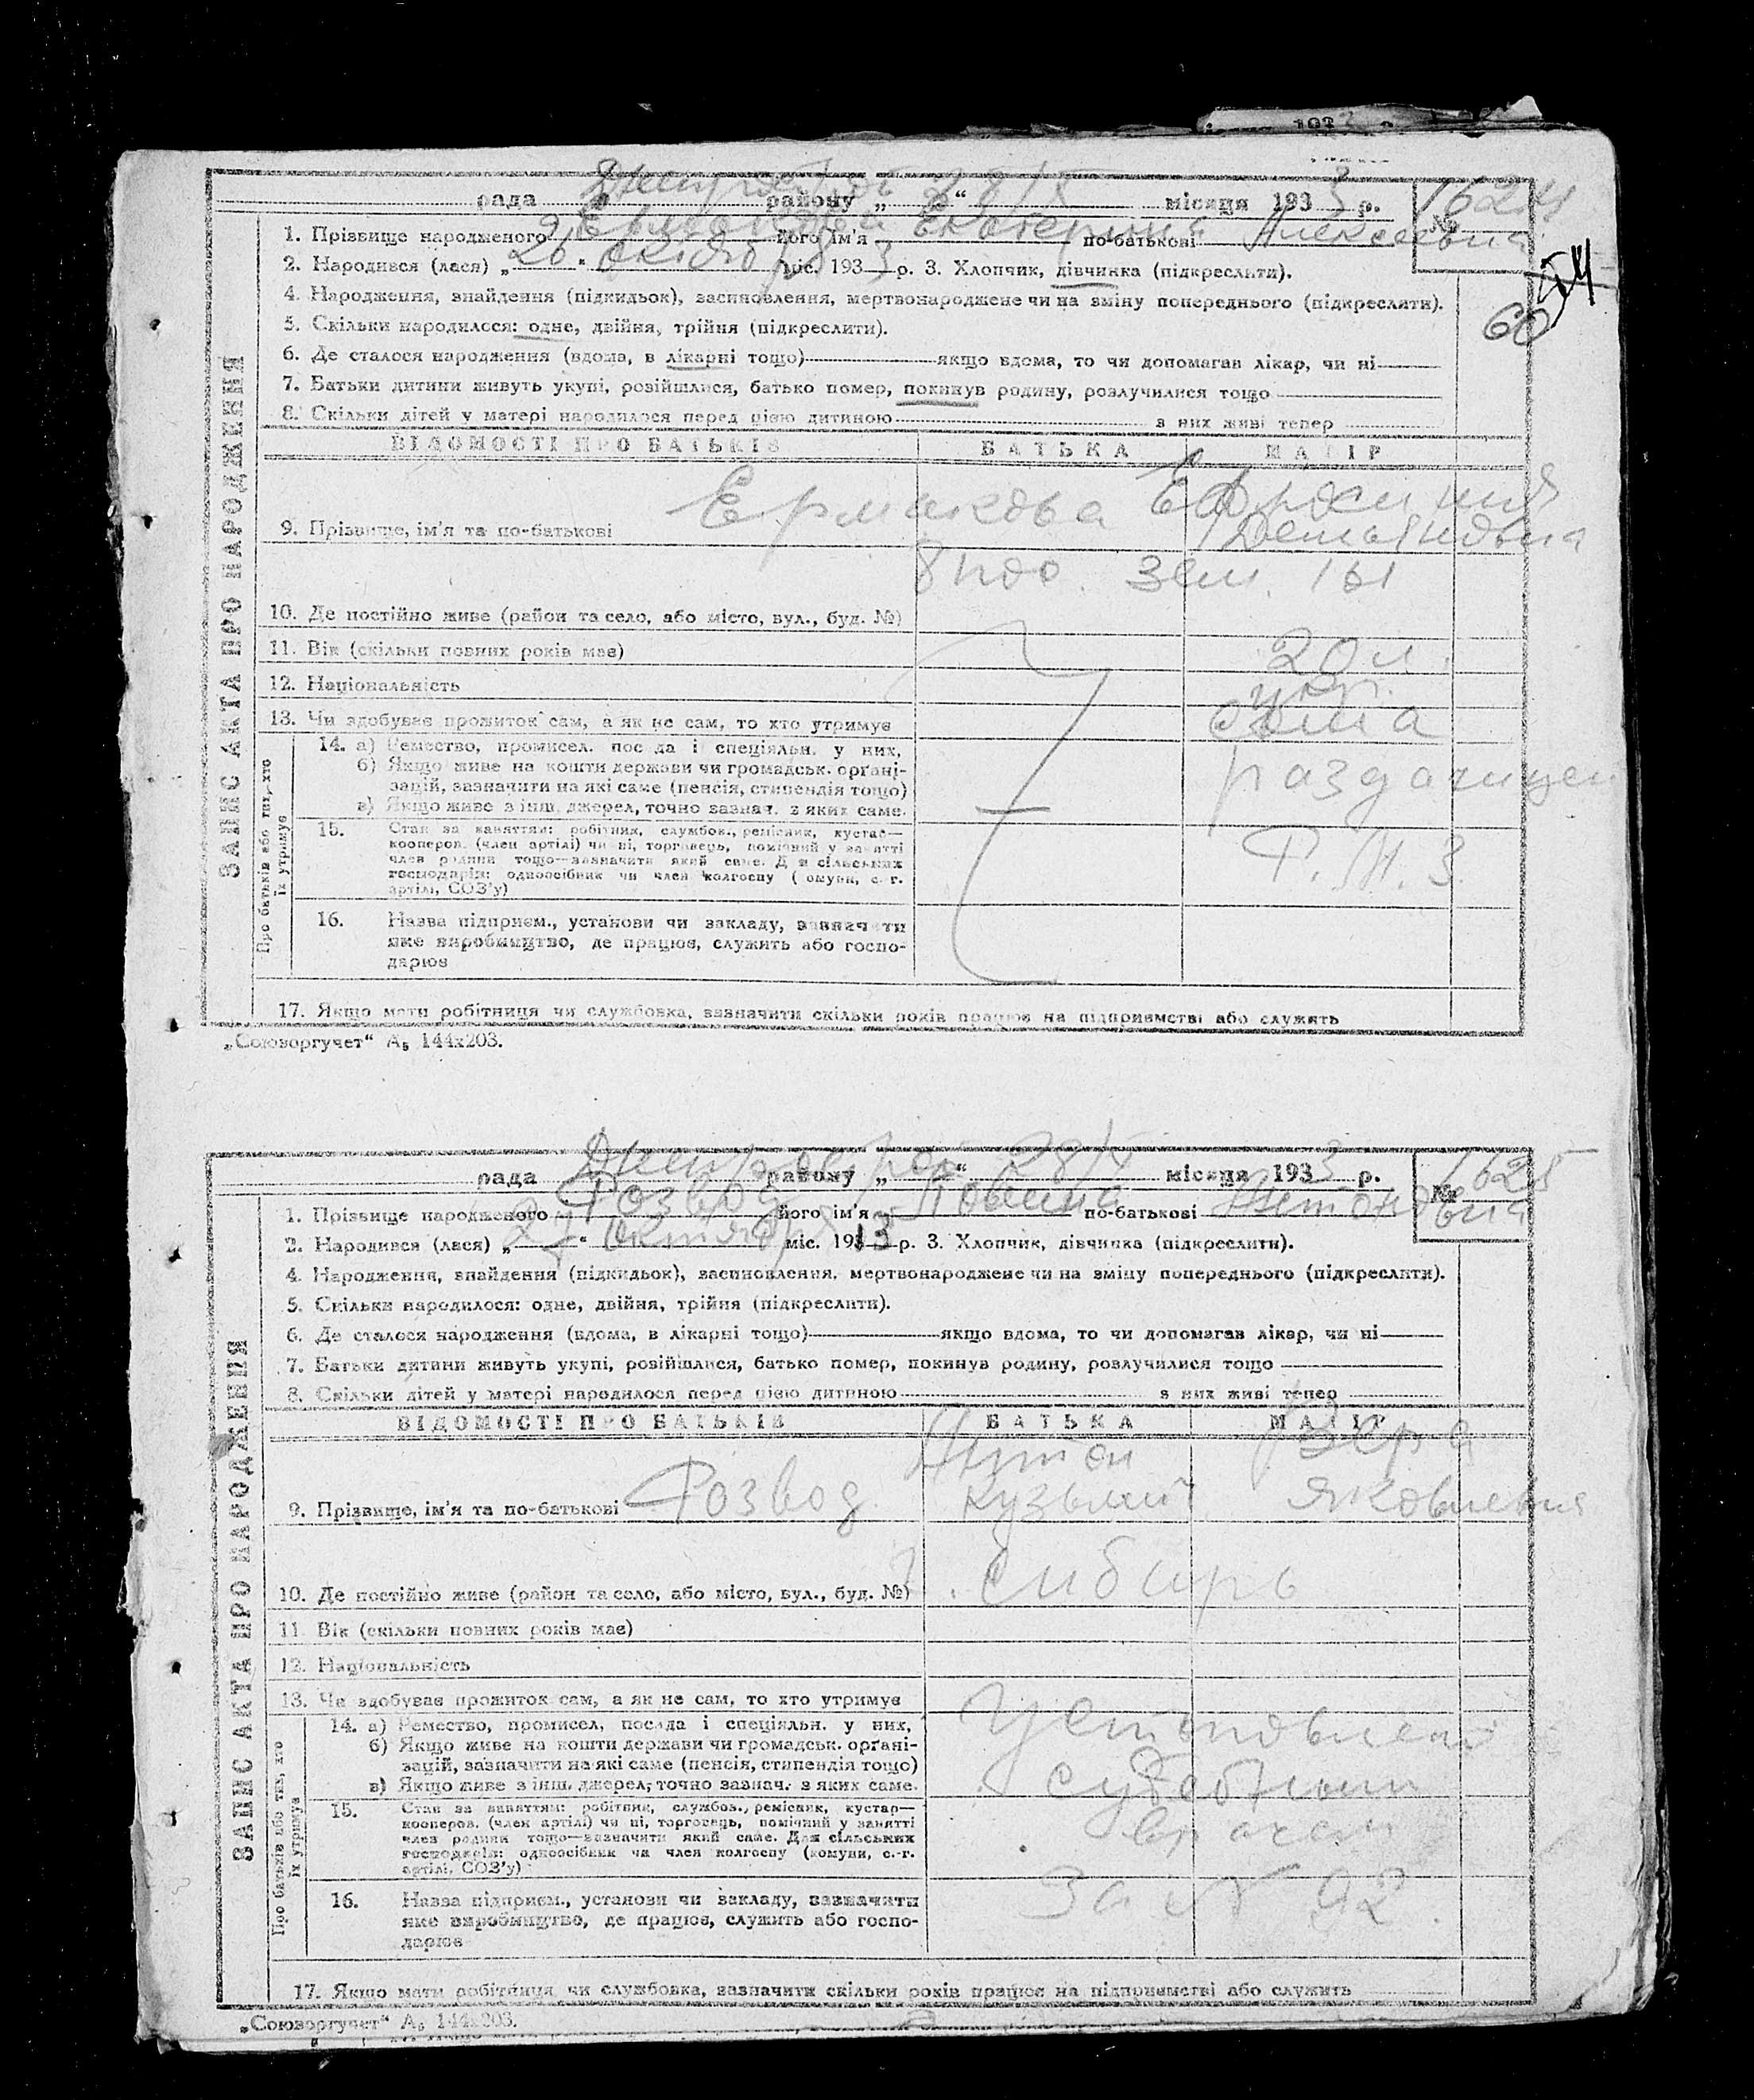 рада району „ 28/X “ місяця 1933 р. № 1624
1. Прізвище народженого Ермакова його ім'я Екатерина по-батькові Алексеевна
2. Народився (лася) „ 26 “ октября міс. 1933 р. 3. Хлопчик, дівчинка (підкреслити).
4. Народження, знайдення (підкидьок), засиновлення, мертвонароджене чи на зміну попереднього (підкреслити).
60
5. Скільки народилося: одне, двійня, трійня (підкреслити).
6. Де сталося народження (вдома, в лікарні тощо) якщо вдома, то чи допомагав лікар, чи ні
7. Батьки дитини живуть укупі, розійшлися, батько помер, покинув родину, розлучилися тощо
8. Скільки дітей у матері народилося перед цією дитиною з них живі тепер
ЗАПИС АКТА ПРО НАРОДЖЕННЯ
ВІДОМОСТІ ПРО БАТЬКІВ БАТЬКА МАТІР
9. Прізвище, ім'я та по-батькові Ермакова Ефросиния
Демьяновна
зем. 161
10. Де постійно живе (район та село, або місто, вул., буд. №)
11. Вік (скільки повних років має) 20 л.
12. Національність укр.
13. Чи здобуває прожиток сам, а як не сам, то хто утримує сама
Про батьків або тих, хто їх утримує
14. а) Ремество, промисел, посада і спеціяльн. у них,
б) Якщо живе на кошти держави чи громадськ. органі-
зацій, зазначити на які саме (пенсія, стипендія тощо)
в) Якщо живе з інш. джерел, точно зазнач. з яких саме.
15. Стан за заняттям: робітник, службов., ремісник, кустар—
кооперов. (член артілі) чи ні, торговець, помічний у занятті
член родини тощо—зазначити який саме. Для сільських
господарів: одноосібник чи член колгоспу (комуни, с.-г.
артілі, СОЗ'у)
16. Назва підприєм., установи чи закладу, зазначити
яке виробництво, де працює, служить або госпо-
дарює
17. Якщо мати робітниця чи службовка, зазначити скільки років працює на підприємстві або служить
„Союзоргучет“ А₅ 144х203.
рада району „ 28/X “ місяця 1933 р. № 1625
1. Прізвище народженого Розвод його ім'я по-батькові Антоновна
2. Народився (лася) „ 27 “ октября міс. 1913 р. 3. Хлопчик, дівчинка (підкреслити).
4. Народження, знайдення (підкидьок), засиновлення, мертвонароджене чи на зміну попереднього (підкреслити).
5. Скільки народилося: одне, двійня, трійня (підкреслити).
6. Де сталося народження (вдома, в лікарні тощо) якщо вдома, то чи допомагав лікар, чи ні
7. Батьки дитини живуть укупі, розійшлися, батько помер, покинув родину, розлучилися тощо
8. Скільки дітей у матері народилося перед цією дитиною з них живі тепер
ЗАПИС АКТА ПРО НАРОДЖЕННЯ
ВІДОМОСТІ ПРО БАТЬКІВ БАТЬКА МАТІР
Антон Вера
9. Прізвище, ім'я та по-батькові Розвод Кузьмич Яковлевна
10. Де постійно живе (район та село, або місто, вул., буд. №) Сибирь
11. Вік (скільки повних років має)
12. Національність
13. Чи здобуває прожиток сам, а як не сам, то хто утримує
Про батьків або тих, хто їх утримує
14. а) Ремество, промисел, посада і спеціяльн. у них, Установлен
б) Якщо живе на кошти держави чи громадськ. органі-
зацій, зазначити на які саме (пенсія, стипендія тощо) судебным
в) Якщо живе з інш. джерел, точно зазнач. з яких саме.
15. Стан за заняттям: робітник, службов., ремісник, кустар— врачем
кооперов. (член артілі) чи ні, торговець, помічний у занятті
член родини тощо—зазначити який саме. Для сільських
господарів: одноосібник чи член колгоспу (комуни, с.-г.
артілі, СОЗ'у)
16. Назва підприєм., установи чи закладу, зазначити За № 92
яке виробництво, де працює, служить або госпо-
дарює
17. Якщо мати робітниця чи службовка, зазначити скільки років працює на підприємстві або служить
„Союзоргучет“ А₅ 144х203.